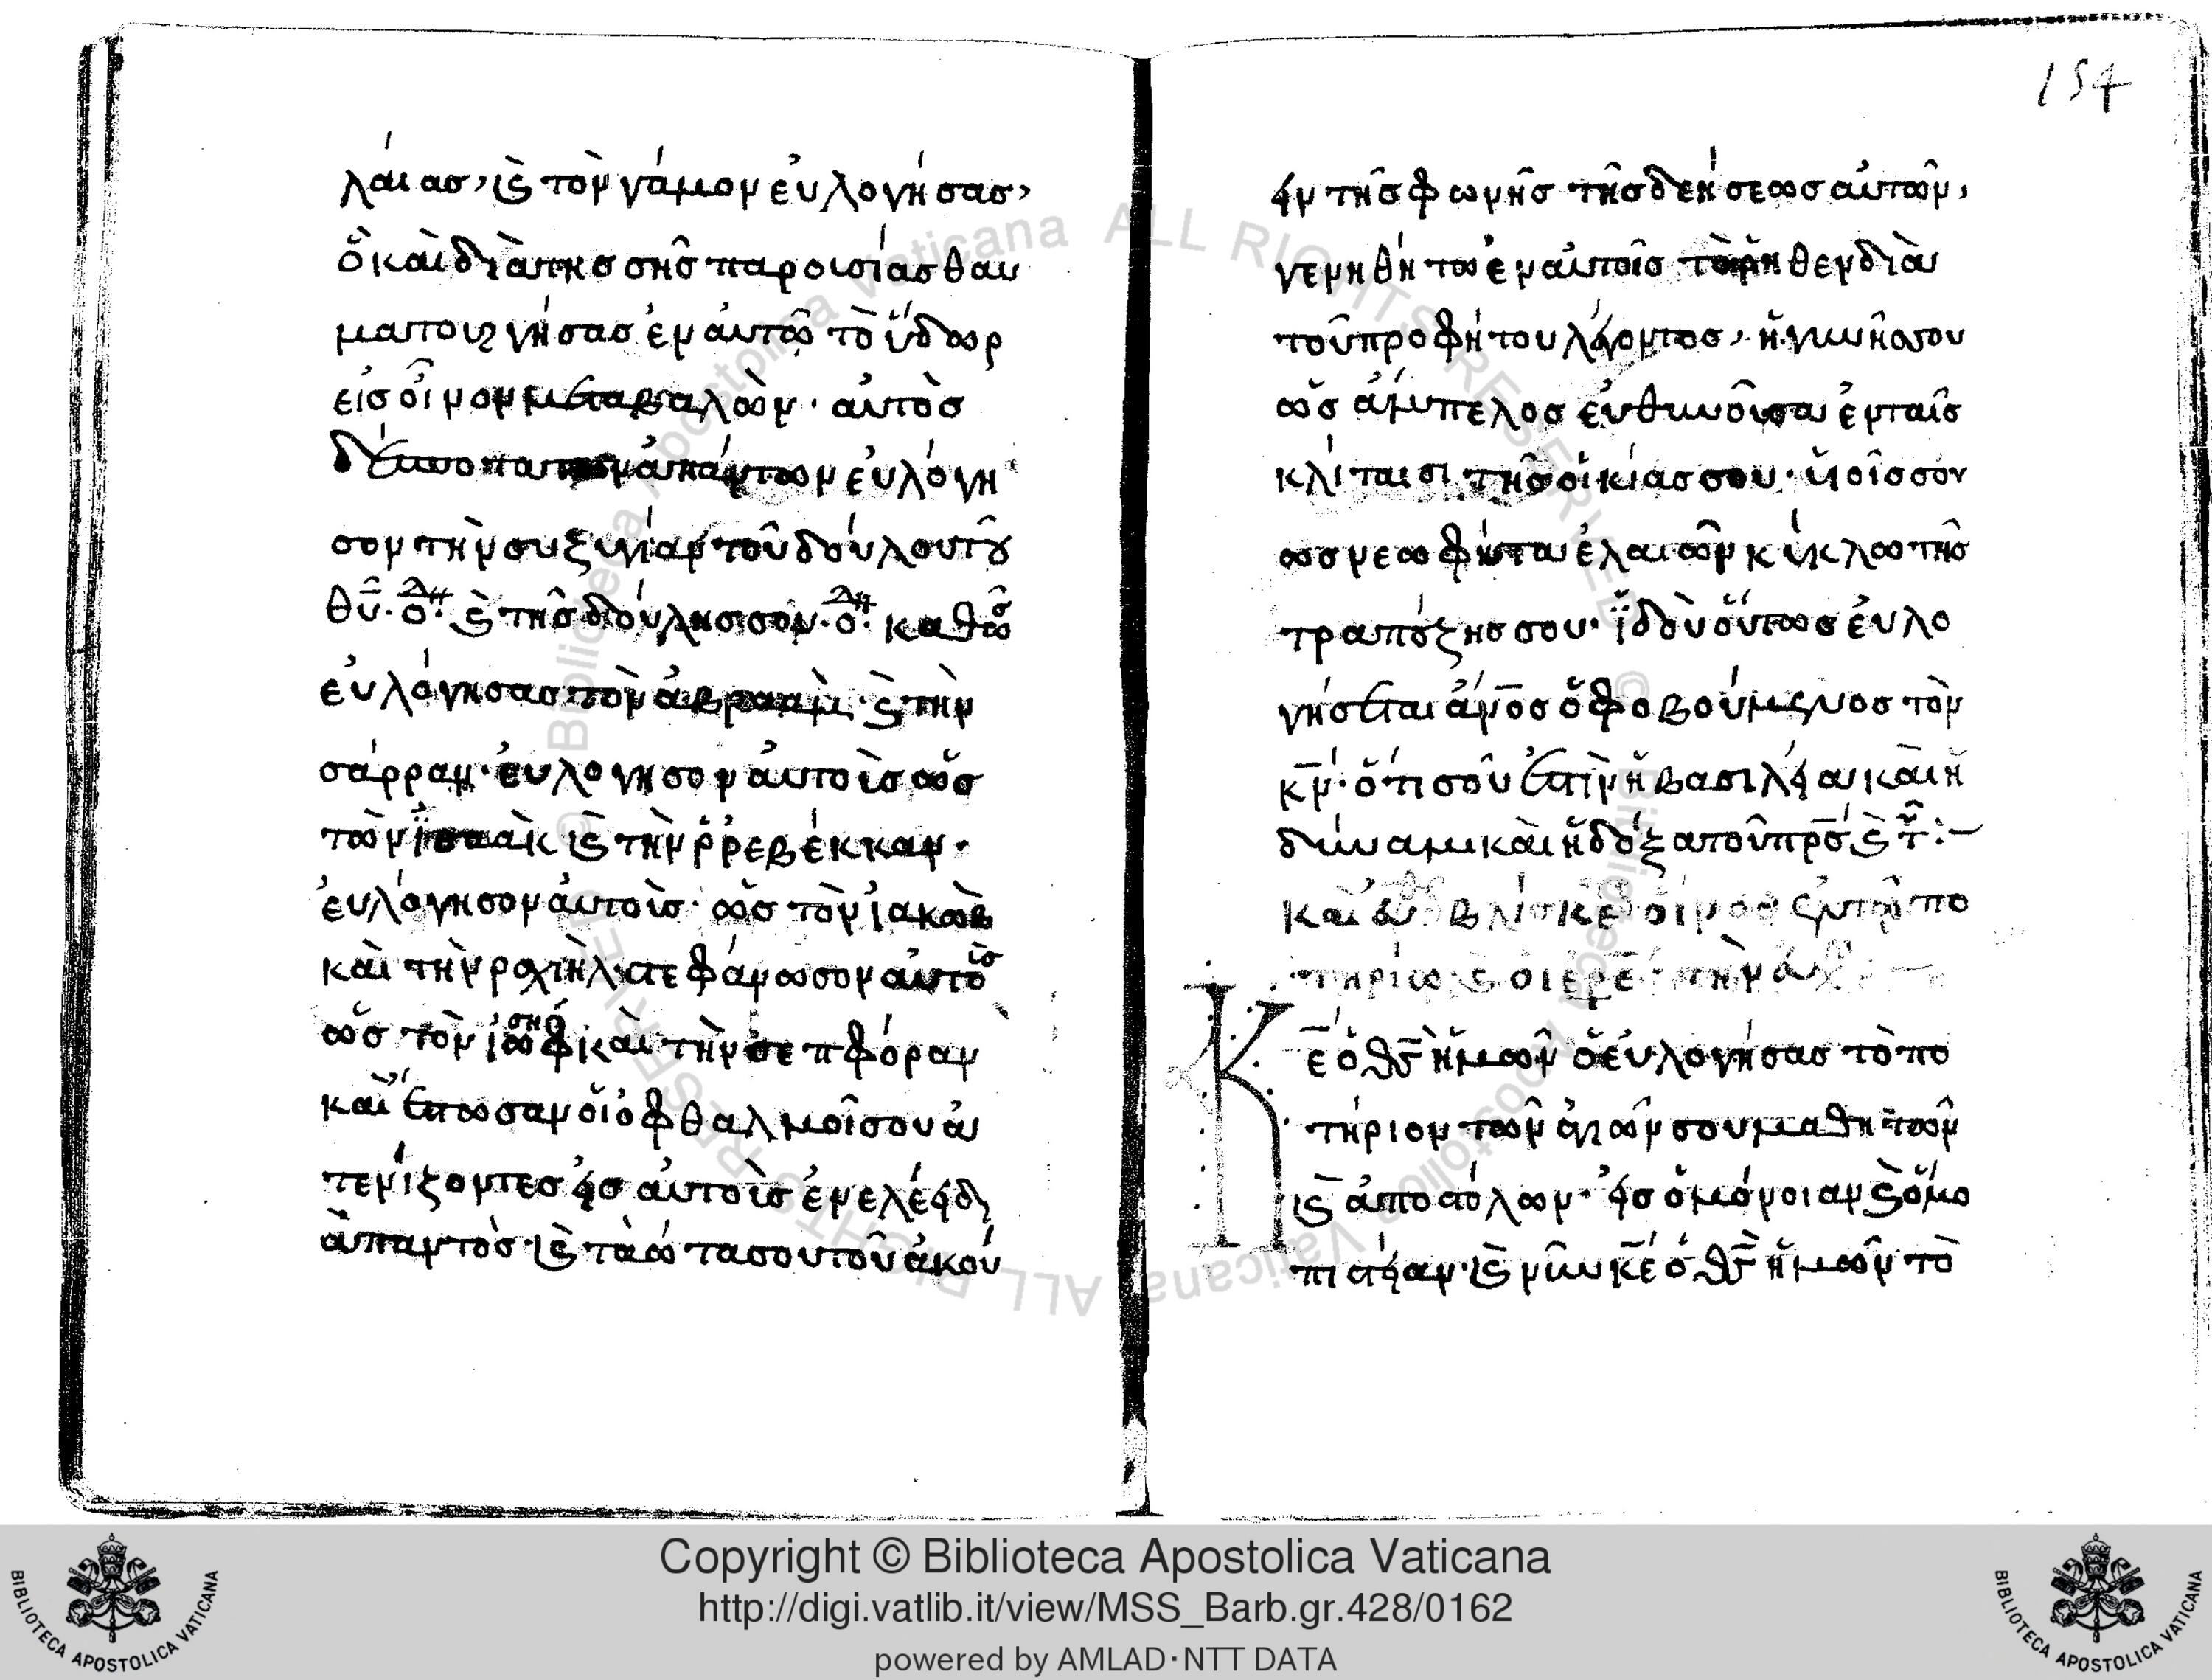 λάιασ, κ(αὶ) τὸν γάμον ἐυλογήσασ,
ὁ καὶ διὰ τησ σῆσ παρουσίασ θαυ
ματουργήσασ ἐν ἀυτῶ τὸ ὕδωρ
εἰσ οἶνον μεταβαλὼν· ἀυτὸσ
δέσποτα τῶν ἁπάντων ἐυλόγη
σον τὴν συζυγίαν τοῦ δούλου τοῦ
θῦ· ὁ δῆ· κ(αὶ) τῆσ δούλησ σου· ὁ δῆ· καθὼσ
ἐυλόγησασ τὸν ἀβραὰμ· κ(αὶ) τὴν
σάρραν· ἐυλογησον ἀυτοὶσ ὡσ
τὼν ἰσαὰκ κ(αὶ) τὴν ῥρεβέκκαν·
ἐυλόγησον ἀυτοὶσ· ὡσ τὸν ἰακὼβ
καὶ τὴν ραχιὴλ στεφάνωσον ἀυτοὶσ
ὡσ τὸν ἰωσὴφ καὶ τὴν σεπφόραν
καὶ ἔστωσαν ὁι ὀφθαλμοῖ σου ἀ
τενίζοντεσ εἰσ ἀυτοὶσ ἐν ελέει δι
ἁπαντὸσ· κ(αὶ) τὰ ώτα σου τοῦ ἀκού
154
ειν τῆσ φωνῆσ τῆσ δεήσεωσ ἀυτῶν,
γενηθήτω ἐν ἀυτοῖσ τὸ ρηθεν διὰ
τοῦ προφήτου λέγοντοσ, ἡ γυνῆ σου
ὡσ ἄμπελοσ ἐυθινοῦσα ἐν ταῖσ
κλίταισι τῆσ οἰκίασ σου· ὑιοῖ σου
ωσ νεωφητα ἐλαιῶν κύκλω τῆσ
τραπέζησ σου· ἰδοὺ όυτωσ ἐυλο
γήσεται ἄνοσ ὁ φοβούμενοσ τὸν
κν· ότι σοῦ ἐστὶν ἡ βασιλεία καὶ ἡ
δύναμι καὶ ἡ δόξα τοῦ προσ κ(αὶ) τ(οῦ):—
Καὶ βλίσκε οίνοσ ἐν τῶ πο
τηρίω κ(αὶ) ὁ ιερε τὴν
Κε ὁ θσ ἡμῶν ὁ ἐυλογήσασ τὸ πο
τήριον τῶν ἁγιῶν σου μαθητῶν
κ(αὶ) ἀποστόλων· εἰσ ὁμόνοιαν κ(αὶ) ὁμο
πιστείαν· κ(αὶ) νῦν κε ὁ θσ ἡμῶν τὸ
Copyright © Biblioteca Apostolica Vaticana
http://digi.vatlib.it/view/MSS_Barb.gr.428/0162
powered by AMLAD·NTT DATA
BIBLIOTECA APOSTOLICA VATICANA
BIBLIOTECA APOSTOLICA VATICANA